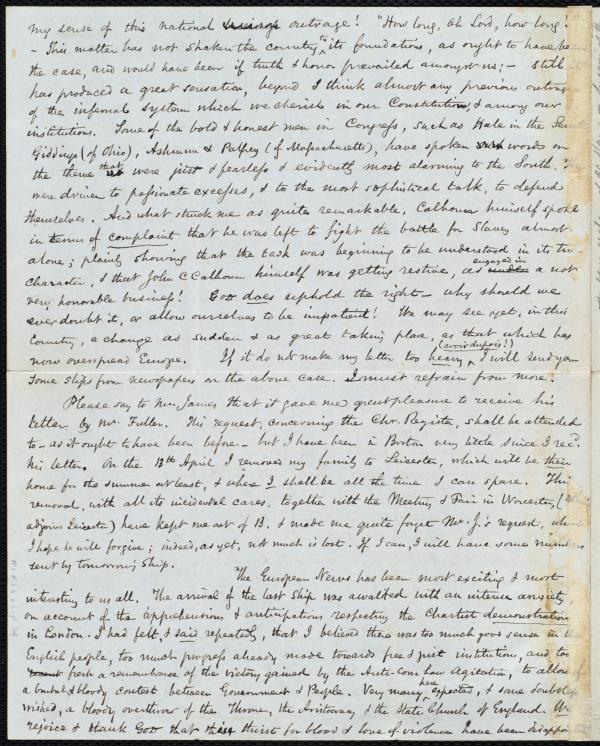 my sense of this national outrage! "How long, Oh Lord, how long!"
- This matter has not shaken the country to its foundations, as ought to have been
the case, and would have been if truth & honor prevailed amongst us; - still it
has produced a great sensation, beyond I think almost any previous outrage
of the infernal system which we cherish in our Constitution, & among our
institutions. Some of the bold & honest men in Congress, such as Hale in the Senate
Giddings (of Ohio), Ashmun & Palfrey (of Massachusetts), have spoken words on
the theme that were just & fearless & evidently most alarming to the South. They
were driven to passionate excesses, & to the most sophistical talk, to defend
themselves. And what struck me as quite remarkable, Calhoun himself spoke
in terms of complaint that he was left to fight the battle for Slavery almost
alone; plainly showing that the task was beginning to be understood in its true
character, & that John C Calhoun himself was getting restive, as engaged in a not
very honorable business! God does uphold the right - why should we
ever doubt it, or allow ourselves to be impatient! We may see yet, in this
Country, a change as sudden & as great taking place, as that which has
now overspread Europe. If it do not make my letter too heavy (avoirdupois!), I will send you
some slips from newspapers on the above case. I must refrain from more.
Please say to Mr. James that it gave me great pleasure to receive his
letter by Mr. Fuller. His request, concerning the Chr. Register, shall be attended
to - as it ought to have been before - but I have been in Boston very little since I recd.
his letter. On the 13th April I removed my family to Leicester, which will be their
home for the summer at least, & where I shall be all the time I can spare. This
removal, with all its incidental cares, together with the Meeting & Fair in Worcester, (
adjoins Leicester) have kept me out of B. & made me quite forget Mr. J's request, which
I hope he will forgive; indeed, as yet, not much is lost. If I can, I will have some numbers
sent by tomorrow's ship.
The European News has been most exciting & most
interesting to us all. The arrival of the last ship was awaited with an intense anxiety,
on account of the apprehensions & anticipations respecting the Chartist demonstration
in London. I had felt, & said repeatedly, that I believed there was too much good sense in the
English people, too much progress already made towards free & just institutions, and too
fresh a remembrance of the victory gained by the Anti-Corn Law Agitation, to allow of
a brutal & bloody contest between Government & People. Very many here expected, & some doubtless
wished, a bloody overthrow of the Throne, the Aristocracy & the State Church of England. We
rejoice & thank God that their thirst for blood & love of violence have been disappoin